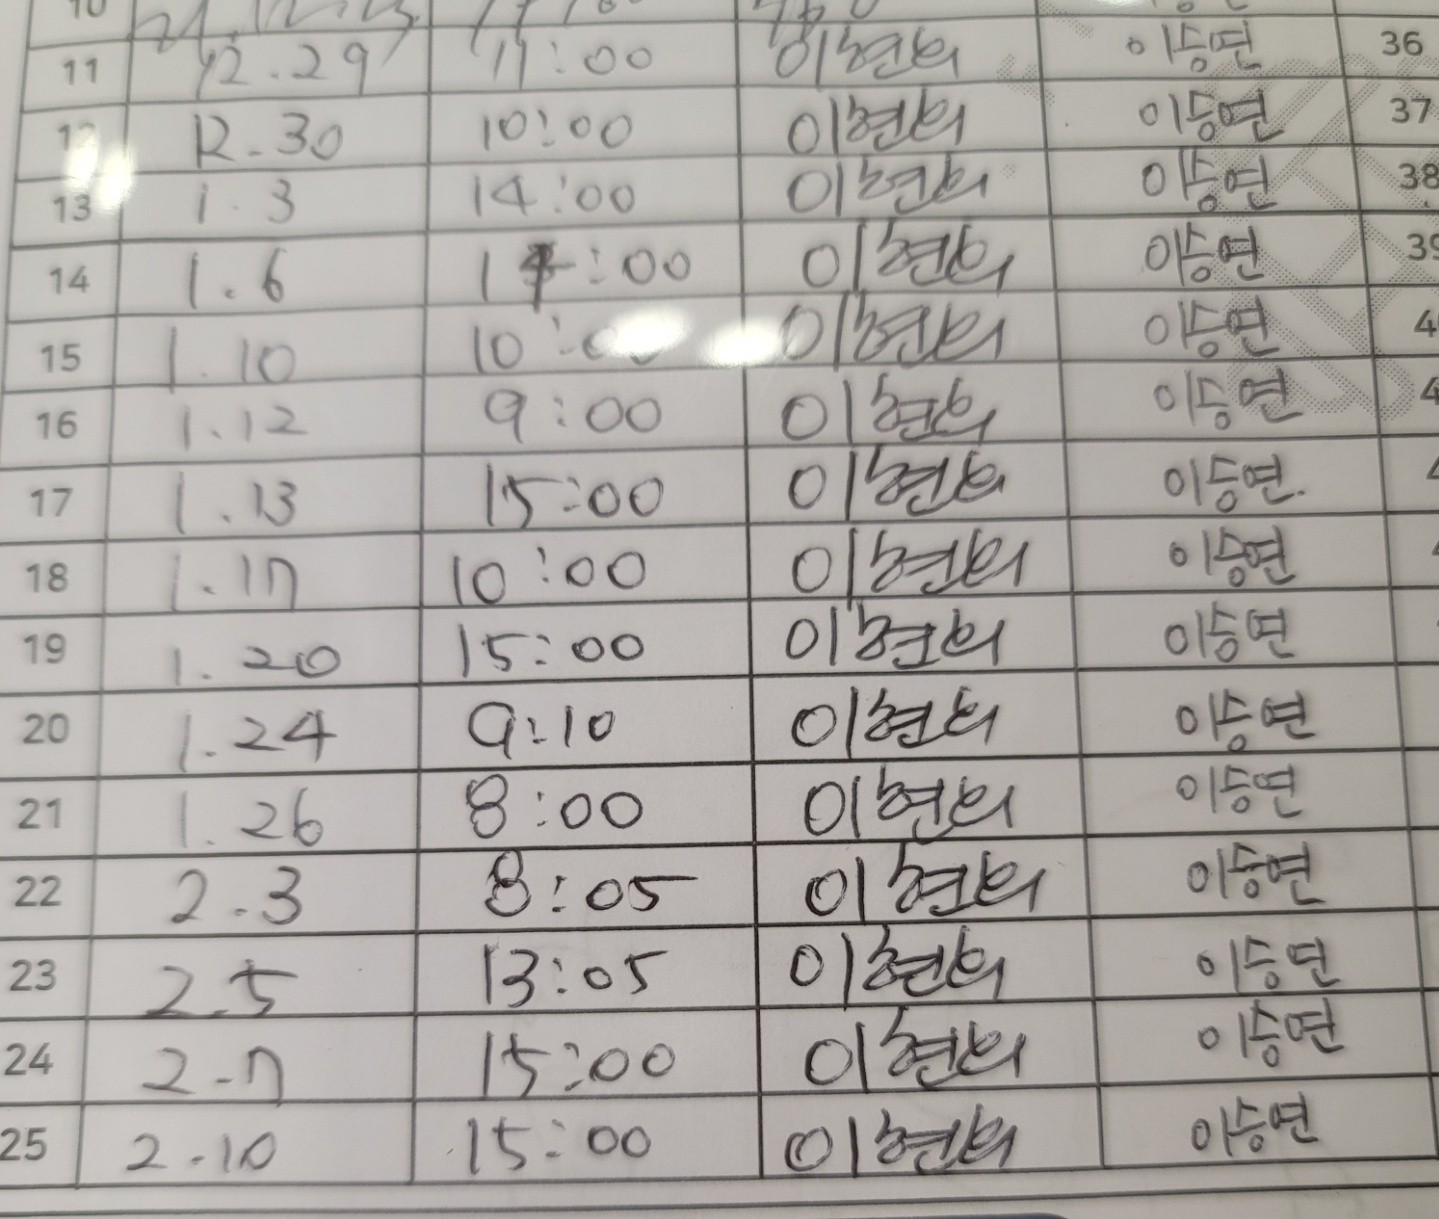 10
11 12.29 11:00 이현희 이승연 36
12 12.30 10:00 이현희 이승연 37
13 1.3 14:00 이현희 이승연 38
14 1.6 :00 이현희 이승연 39
15 1.10 10:00 이현희 이승연
16 1.12 9:00 이현희 이승연
17 1.13 15:00 이현희 이승연.
18 1.17 10:00 이현희 이승연
19 1.20 15:00 이현희 이승연
20 1.24 9:10 이현희 이승연
21 1.26 8:00 이현희 이승연
22 2.3 8:05 이현희 이승연
23 2.5 13:05 이현희 이승연
24 2.7 15:00 이현희 이승연
25 2.10 15:00 이현희 이승연